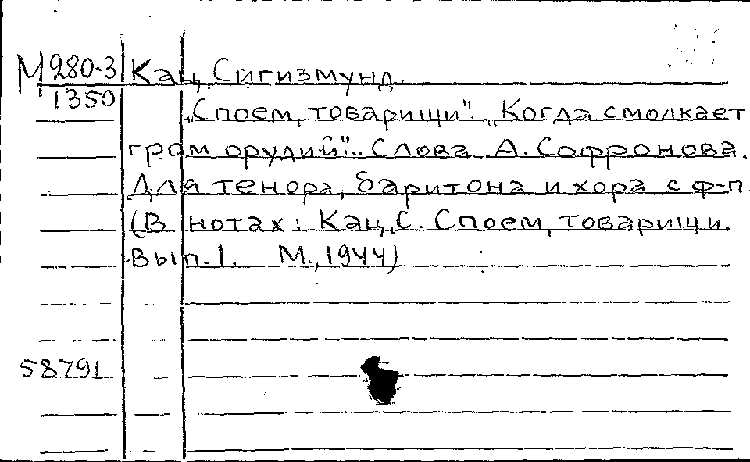 М 280-3 Кац, Сигизмунд.
1350
„Споем, товарищи". „Когда смолкает
гром орудий". Слова А. Софронова.
Для тенора, баритона и хора с ф-п.
(В нотах: Кац, С. Споем, товарищи.
Вып. 1. М., 1944)
58791